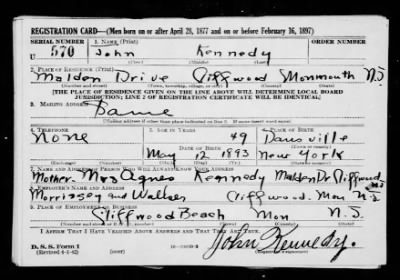 REGISTRATION CARD—(Men born on or after April 28, 1877 and on or before February 16, 1897)
SERIAL NUMBER 1. NAME (Print)
U 570 John Kennedy
(First) (Middle) (Last)
2. PLACE OF RESIDENCE (Print)
Maldon Drive Cliffwood Monmouth N.J.
(Number and street) (Town, township, village, or city) (County) (State)
[THE PLACE OF RESIDENCE GIVEN ON THE LINE ABOVE WILL DETERMINE LOCAL BOARD
JURISDICTION; LINE 2 OF REGISTRATION CERTIFICATE WILL BE IDENTICAL]
3. MAILING ADDRESS
Same
[Mailing address if other than place indicated on line 2. If same insert word same]
4. TELEPHONE 5. AGE IN YEARS 6. PLACE OF BIRTH
None 49 Dansville
DATE OF BIRTH (Town or county)
May 12 1893 New York
(Exchange) (Number) (Mo.) (Day) (Yr.) (State or country)
7. NAME AND ADDRESS OF PERSON WHO WILL ALWAYS KNOW YOUR ADDRESS
Mother. Mrs Agnes Kennedy Maldon Dr Cliffwood NJ
8. EMPLOYER'S NAME AND ADDRESS
Morrissey and Walker Cliffwood. Mon N J
9. PLACE OF EMPLOYMENT OR BUSINESS
Cliffwood Beach Mon N. J.
(Number and street or R. F. D. number) (Town) (County) (State)
I AFFIRM THAT I HAVE VERIFIED ABOVE ANSWERS AND THAT THEY ARE TRUE.
D. S. S. Form 1
(Revised 4-1-42)
John Kennedy.